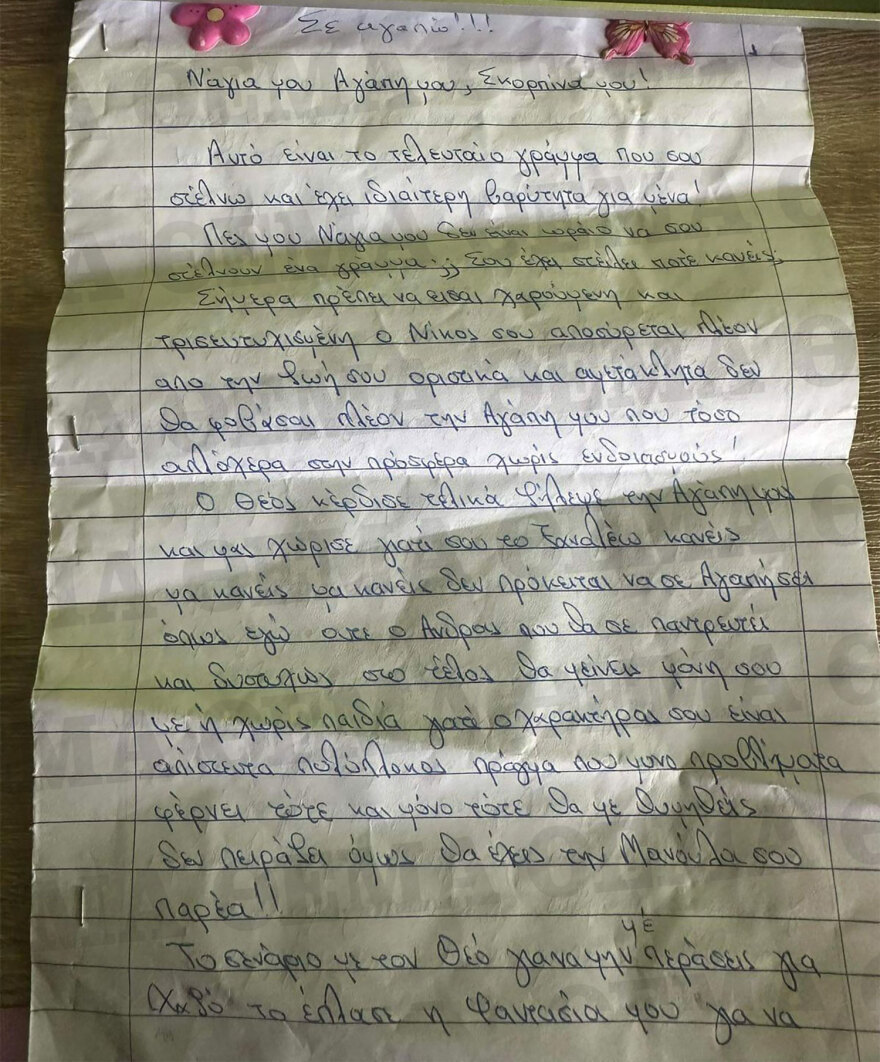 Σε αγαπώ!!!
Νάγια μου Αγάπη μου, Σκορπίνα μου!
Αυτό είναι το τελευταίο γράμμα που σου
στέλνω και έχει ιδιαίτερη βαρύτητα για μένα!
Πες μου Νάγια μου δεν είναι ωραίο να σου
στέλνουν ένα γράμμα;;; Σου έχει στείλει ποτέ κανείς;
Σήμερα πρέπει να εισαι χαρούμενη και
τρισευτυχισμένη ο Νίκος σου αποσύρεται πλέον
απο την ζωή σου οριστικά και αμετάκλητα δεν
θα φοβάσαι πλέον την Αγάπη μου που τόσο
απλόχερα στην πρόσφερα χωρίς ενδοιασμούς!
Ο Θεός κέρδισε τελικά ζήλεψε την Αγάπη μου
και μας χώρισε γιατί σου το ξαναλέω κανείς
μα κανείς μα κανείς δεν πρόκειται να σε Αγαπήσει
όπως εγώ ουτε ο Άνδρας που θα σε παντρευτεί
και δυστυχώς στο τέλος θα μείνεις μόνη σου
με ή χωρίς παιδιά γιατί ο χαρακτήρας σου είναι
απίστευτα πολύπλοκος πράγμα που μονο προβλήματα
φέρνει τότε και μόνο τότε θα με θυμηθείς
δεν πειράζει όμως θα έχεις την Μανούλα σου
παρέα!!
Το σενάριο με τον Θεό για να μην με περάσεις για
Χαζό το έπλασε η Φαντασία μου για να